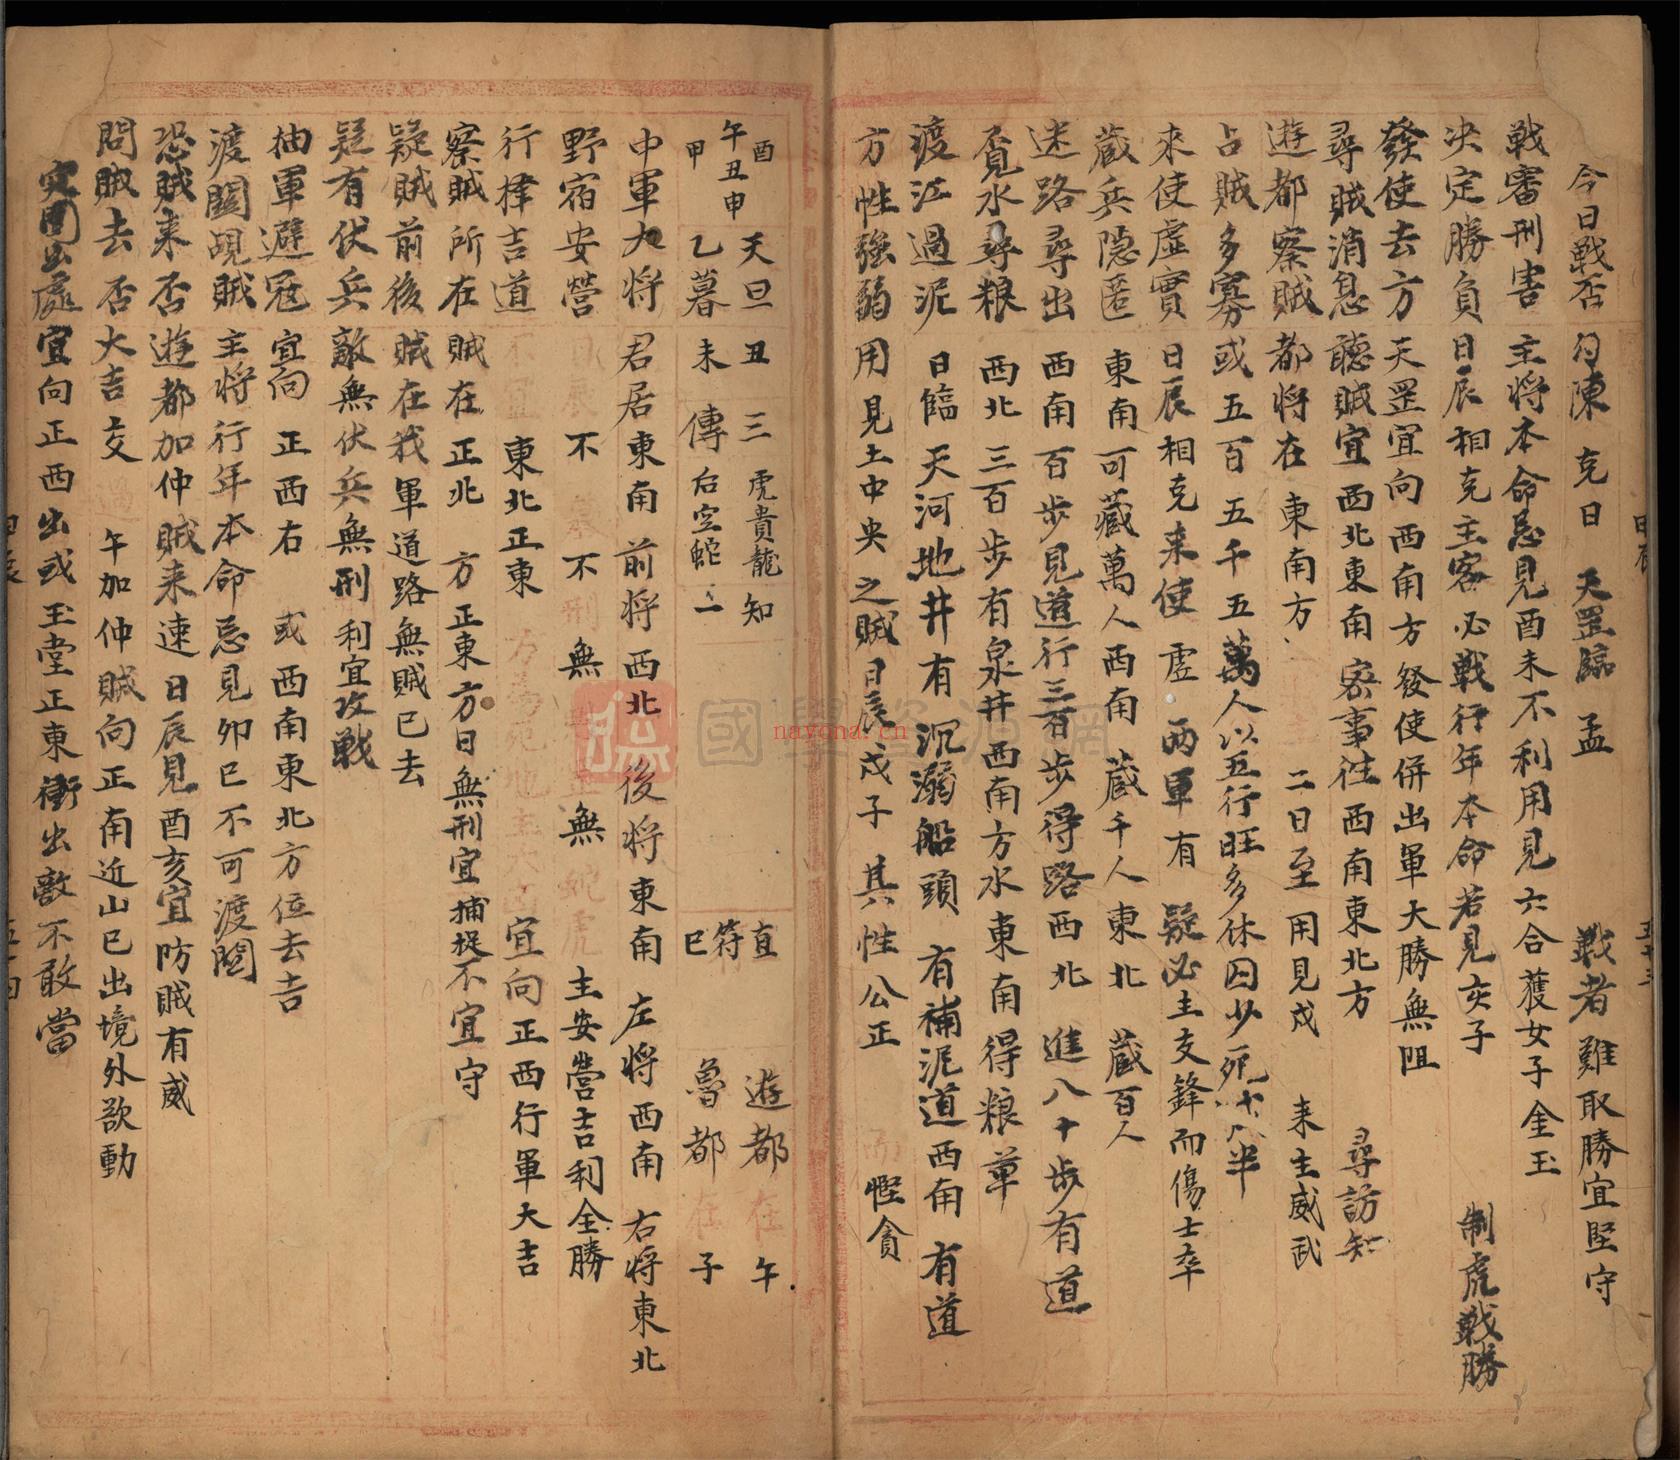 今日戰否 勾陳 克日 天罡臨 孟 戰者難取勝宜堅守
戰審刑害 主將本命忌見酉未不利用見六合獲女子金玉
决定勝負日辰相克主客必戰行年本命若見亥子 制虎戰勝
發使去方天罡宜向西南方發使併出軍大勝無阻
尋賊消息聽賊宜西北東南察事往西南東北方 尋訪知
遊都察賊都將在東南方 二日至用見戌 来主威武
占賊多寡或五百五千五萬人以五行旺多休囚少死 半
來使虛實日辰相克来使虛 两軍有疑必主交鋒而傷士卒
蔵兵隱匿 東南可藏萬人西南蔵千人東北蔵百人
迷路尋出 西南百步見道行三百步得路西北進八十步有道
覓水尋粮 西北三百步有泉井西南方水東南得粮草
渡江過泥 日臨天河地井有沉溺船頭有補泥道西南有道
方性強弱用見土中央之賊日辰戌子其性公正 慳貪
酉 天旦丑 三 虎貴龍 知 直 遊都在午
午丑申 符
甲 乙暮未 傳 后空蛇 二 巳 魯都在子
中軍大将 君居東南 前将西北 後将東南 左将西南 右将東北
野宿安營 不 不 無 無 主安營吉利全勝
行擇吉道 東北正東 宜向正西行軍大吉
察賊所在 賊在正北 方正東方日無刑宜捕捉不宜守
疑賊前後 賊在我軍道路無賊已去
疑有伏兵敵無伏兵無刑利宜攻戰
抽軍避冦 宜向正西右 或西南東北方位去吉
渡關覘賊 主將行年本命忌見卯巳不可渡関
恐賊来否 遊都加仲賊来速日辰見酉亥宜防賊有威
問賊去否大吉交 午加仲賊向正南近山已出境外欲動
突圍出處宜向正西出或玉堂正東衝出敵不敢當